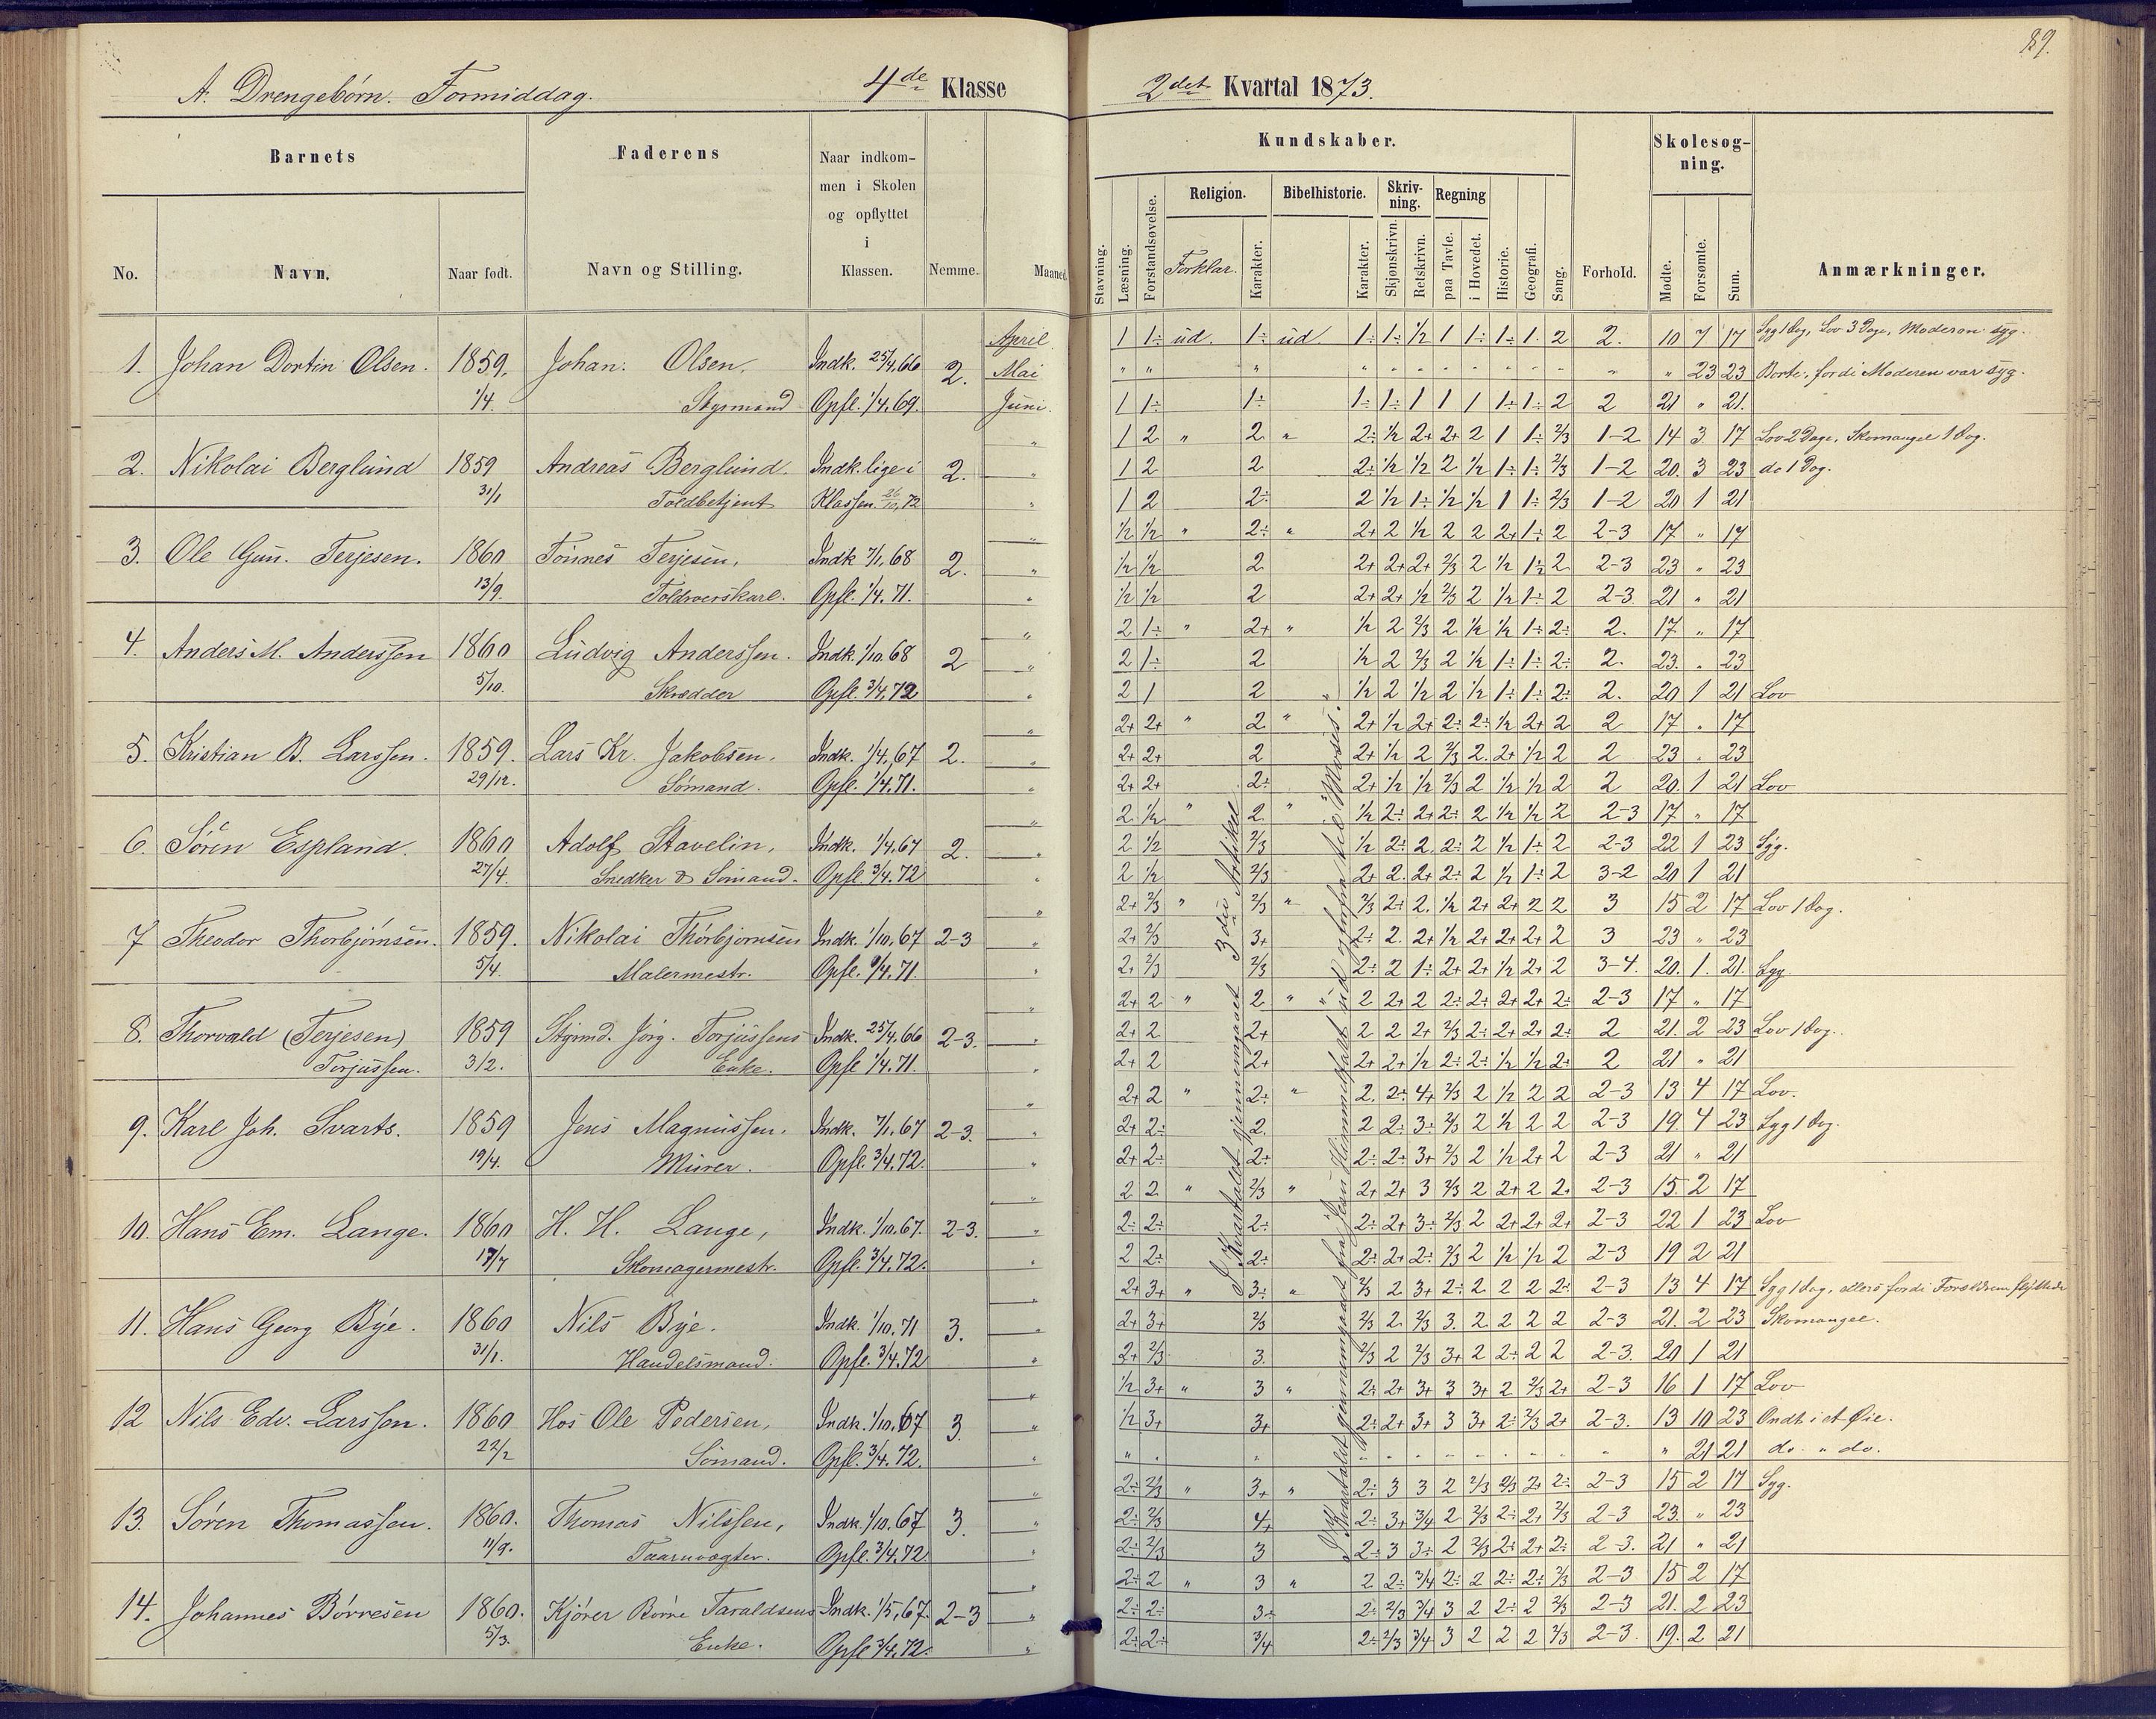 89.
A. Drengebørn. Formiddag. 4de Klasse
2det Kvartal 1873.
Barnets
No. Navn. Naar født.
Faderens
Navn og Stilling.
Naar indkom-
men i Skolen
og opflyttet
i
Klassen.
Nemme.
Maaned.
Kundskaber.
Stavning. Læsning. Forstandsøvelse.
Religion. Forklar. Karakter.
Bibelhistorie. Karakter.
Skriv-
ning. Skjønskrivn. Retskrivn.
Regning paa Tavle. i Hovedet.
Historie. Geografi. Sang.
Forhold.
Skolesøg-
ning.
Mødte. Forsømte. Sum.
Anmærkninger.
April 1 1÷ ud. 1÷ ud. 1÷ 1÷ ½ 1 1÷ 1÷ 1. 2 2. 10 7 17 Syg 1 Dag, Lov 3 Dage, Moderen syg.
1. Johan Dortin Olsen. 1859. Johan Olsen, Indk. 25/4.66 2. Mai " " " " " " " " " " " " " " 23 23 Borte, fordi Moderen var syg.
1/4. Styrmand Opfl. 1/4.69. Juni. 1 1÷ 1÷ 1÷ 1÷ 1 1 1 1÷ 1÷ 2 2 21 " 21.
" 1 2 " 2 " 2÷ ½ 2+ 2+ 2 1 1÷ 2/3 1-2 14 3 17 Lov 2 Dage, Skomangel 1 Dag.
2. Nikolai Berglund 1859 Andreas Berglund. Indk. lige i 2. " 1 2 2 2÷ ½ ½ 2 ½ 1÷ 1÷ 2/3 1-2 20. 3 23 do 1 Dag.
31/1 Toldbetjent Klassen. 26/10.72 " 1 2 2÷ 2 ½ 1÷ ½ ½ 1 1÷ 2/3 1-2 20 1 21
" ½ ½ " 2÷ " 2+ 2 ½ 2 2 2+ 1÷ 2 2-3 17 " 17
3. Ole Gun. Terjesen. 1860 Tönnes Terjesen, Indk 7/1.68 2. " ½ ½ 2 2+ 2+ 2+ 2/3 2 ½ 1÷ 2 2-3 23 " 23
13/9. Toldroerskarl. Opfl. 1/4.71. " ½ ½ 2 2+ 2+ ½ 2/3 2 ½ 1÷ 2 2-3 21 " 21
" 2 1÷ " 2+ " ½ 2 2/3 2 ½ ½ 1÷ 2÷ 2. 17 " 17
4. Anders M. Anderssen 1860 Ludvig Anderssen. Indk. 1/10.68 2 " 2 1÷ 2 ½ 2 2/3 2 ½ 1÷ 1÷ 2÷ 2. 23. " 23
5/10. Skrædder Opfl. 3/4.72 " 2 1 2 ½ 2 ½ 2 ½ 1÷ 1÷ 2÷ 2. 20 1 21 Lov
" 2+ 2+ " 2 " 2+ ½ 2+ 2÷ 2÷ ½ 2+ 2 2 17 " 17
5. Kristian B. Larssen. 1859. Lars Kr. Jakobsen, Indk. 1/4.67 2. " 2+ 2+ 2 2+ ½ 2 2/3 2. 2+ ½ 2 2 23 " 23
29/12. Sømand. Opfl. 1/4.71. " 2+ 2+ 2÷ 2+ ½ ½ 2/3 2 ½ ½ 2 2 20. 1 21 Lov
" 2 ½ " 2 " ½ 2÷ 2+ 2÷ 2 ½ ½ 2 2-3 17 " 17
6. Sören Espland. 1860 Adolf Stavelin, Indk. 1/4.67 2. " 2 ½ 2/3 ½ 2÷ 2. 2÷ 2 ½ 1÷ 2 2-3 22 1 23 Syg.
27/4. Snedker & Sömand. Opfl. 3/4.72 " 2 ½ 2/3 2+ 2. 2+ 2÷ 2 ½ 1÷ 2 3-2 20 1 21
" 2+ 2/3 " 2/3 " 2/3 2÷ 2. ½ 2+ 2+ 2 2 3 15 2 17 Lov 1 Dag.
7 Theodor Thorbjörnsen. 1859. Nikolai Thorbjörnsen Indk. 1/10.67 2-3 " 2+ 2/3 3+ 2÷ 2. 2+ ½ 2+ 2+ 2+ 2 3 23 " 23
5/4. Malermestr. Opfl. 1/4.71. " 2+ 2/3 2/3 2÷ 2 1÷ 2+ 2+ ½ 2+ 2 3-4. 20. 1. 21. Syg.
" 2+ 2 " 2 " 2 2+ 2 2÷ 2÷ 2+ 2+ 2÷ 2-3 17 " 17
8. Thorvald (Terjesen) 1859 Styrmd. Jörg. Torjussens Indk. 25/4.66 2-3. " 2+ 2 2+ 2 2 2+ 2/3 2÷ 2+ 2+ 2÷ 2 21. 2 23 Lov 1 Dag.
Torjussen. 3/2. Enke. Opfl 1/4.71. " 2+ 2 2+ 2+ 2+ ½ 2÷ 2÷ ½ ½ 2÷ 2 21 " 21
" 2+ 2 " 2÷ " 2. 2÷ 4+ 2/3 2 ½ 2 2 2-3 13 4 17 Lov.
9. Karl Joh. Svarts. 1859 Jens Magnussen. Indk. 7/1.67 2-3. " 2+ 2÷ 2. 2 2÷ 3÷ 2/3 2 ½ 2 2 2-3 19. 4 23 Syg 1 Dag.
19/4. Murer. Opfl. 3/4.72. " 2+ 2÷ 2÷ 2÷ 2÷ 3+ 2/3 2 ½ 2+ 2 2-3 21 " 21
" 2 2 " 2/3 " 2+ 2+ 3 3/3 2 2+ 2 2÷ 2-3 15. 2 17
10. Hans Em. Lange. 1860 H. H. Lange, Indk. 1/10.67. 2-3. " 2÷ 2÷ 2÷ 2÷ 2+ 3÷ 2/3 2 2+ 2+ 2+ 2-3 22 1 23 Lov
17/7 Skomagermestr. Opfl. 3/4.72. " 2 2÷ 2÷ 2÷ 2+ 2÷ 2/3 2 ½ ½ 2 2-3 19 2 21
" 2+ 3+ " 3÷ " 2/3 2 3+ 2÷ 2 2 2 2÷ 2-3 13 4 17 Syg 1 Dag, ellers fordi Forældrene flyttede
11. Hans Georg Bye. 1860 Nils Bye. Indk. 1/10.71 3. " 2+ 3+ 2/3 2/3 2 2/3 3. 2. 2 2 2 2-3 21. 2 23 Skomangel.
31/1. Handelsmand. Opfl. 3/4.72 " 2+ 2/3 3. 2/3 2 2/3 3+ 2 2÷ 2 2 2-3. 20 1 21
" ½ 3+ " 3 " 2÷ 2+ 3+ 3 3+ 2 2/3 2+ 2-3 16 1 17 Lov
12 Nils Edv. Larssen. 1860 Hos Ole Pedersen, Indk. 1/10.67 3. " ½ 3+ 3+ 2÷ 2+ 3+ 3 3+ 2÷ 2/3 2+ 2-3. 13 10 23 Ondt i et Øie.
22/2 Sömand. Opfl. 3/4.72. " " " " " " " " " " " " " " 21 21 do. " do.
" 2÷ 2/3 " 3+ " 2÷ 3 3 2 2/3 2/3 2+ 2÷ 2-3 15 2 17 Syg.
13. Sören Thomassen. 1860. Thomas Nilssen, Indk. 1/10.67 3. " 2÷ 2/3 4+ 2÷ 3+ 3/4 2 2/3 2÷ 2+ 2/3 2-3 23. " 23
11/9. Taarnvægter. Opfl. 3/4.72 " 2÷ 2/3 3 2÷ 3 3÷ 2 2/3 2÷ 2+ 2÷ 2-3. 21 " 21
" 2÷ 2 " 3 " 2 2÷ 3/4 2÷ 2 2÷ 2÷ 2/3 2-3 15 2 17
14. Johannes Börresen 1860. Kjörer Börre Taraldsens Indk. 1/5.67. 2-3 " 2÷ 2÷ 3÷ 2÷ 2/3 3/4 3 2 2÷ 2 2/3 2-3 21. 2 23
5/3. Enke. Opfl 3/4.72. " 2÷ 2÷ 3/4 2÷ 2/3 3/4 3 2 2 2 2/3 2-3. 19. 2 21
I Kvartalet gjennemgaaet 3die Artikel
I Kvartalet gjennemgaaet fra Jesu Himmelfart ud og forfra til Moses.